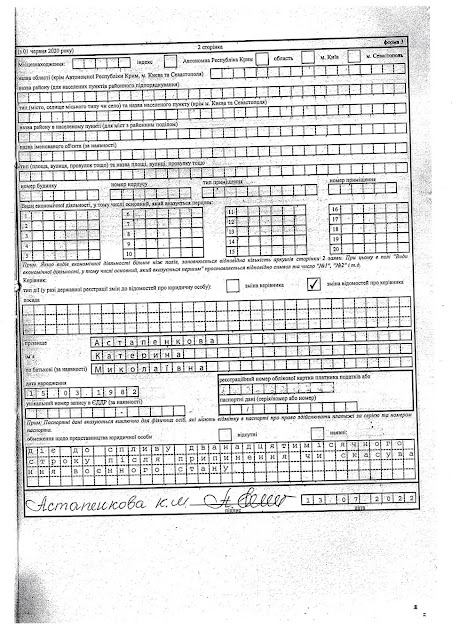 (з 01 червня 2020 року) 2 сторінка форма 3
Місцезнаходження: індекс Автономна Республіка Крим область м. Київ м. Севастополь
назва області (крім Автономної Республіки Крим, м. Києва та Севастополя)
назва району (для населених пунктів районного підпорядкування)
тип (місто, селище міського типу чи село) та назва населеного пункту (крім м. Києва та Севастополя)
назва району в населеному пункті (для міст з районним поділом)
назва іменованого об'єкта (за наявності)
тип (площа, вулиця, провулок тощо) та назва площі, вулиці, провулку тощо
номер будинку номер корпусу тип приміщення номер приміщення
Види економічної діяльності, у тому числі основний, який вказується першим:
1 6 11 16
2 7 12 17
3 8 13 18
4 9 14 19
5 10 15 20
Прим. Якщо видів економічної діяльності більше ніж полів, заповнюється відповідна кількість аркушів сторінки 2 заяви. При цьому в полі "Види
економічної діяльності, у тому числі основний, який вказується першим" проставляється відповідно символ та число "№1", "№2" і т.д.
Керівник:
тип дії (у разі державної реєстрації змін до відомостей про юридичну особу): зміна керівника ✓ зміна відомостей про керівника
посада
прізвище Астапенкова
ім'я Катерина
по батькові (за наявності) Миколаївна
дата народження реєстраційний номер облікової картки платника податків або
15.03.1982
унікальний номер запису в ЄДДР (за наявності) паспортні дані (серія/номер або номер)
Прим. Паспортні дані вказуються виключно для фізичних осіб, які мають відмітку в паспорті про право здійснювати платежі за серією та номером
паспорта.
обмеження щодо представництва юридичної особи відсутні наявні:
діє до спливу дванадцятимісячного
строку після припинення чи скасува
ння воєнного стану
Астапенкова К.М. 13.07.2022
підпис дата